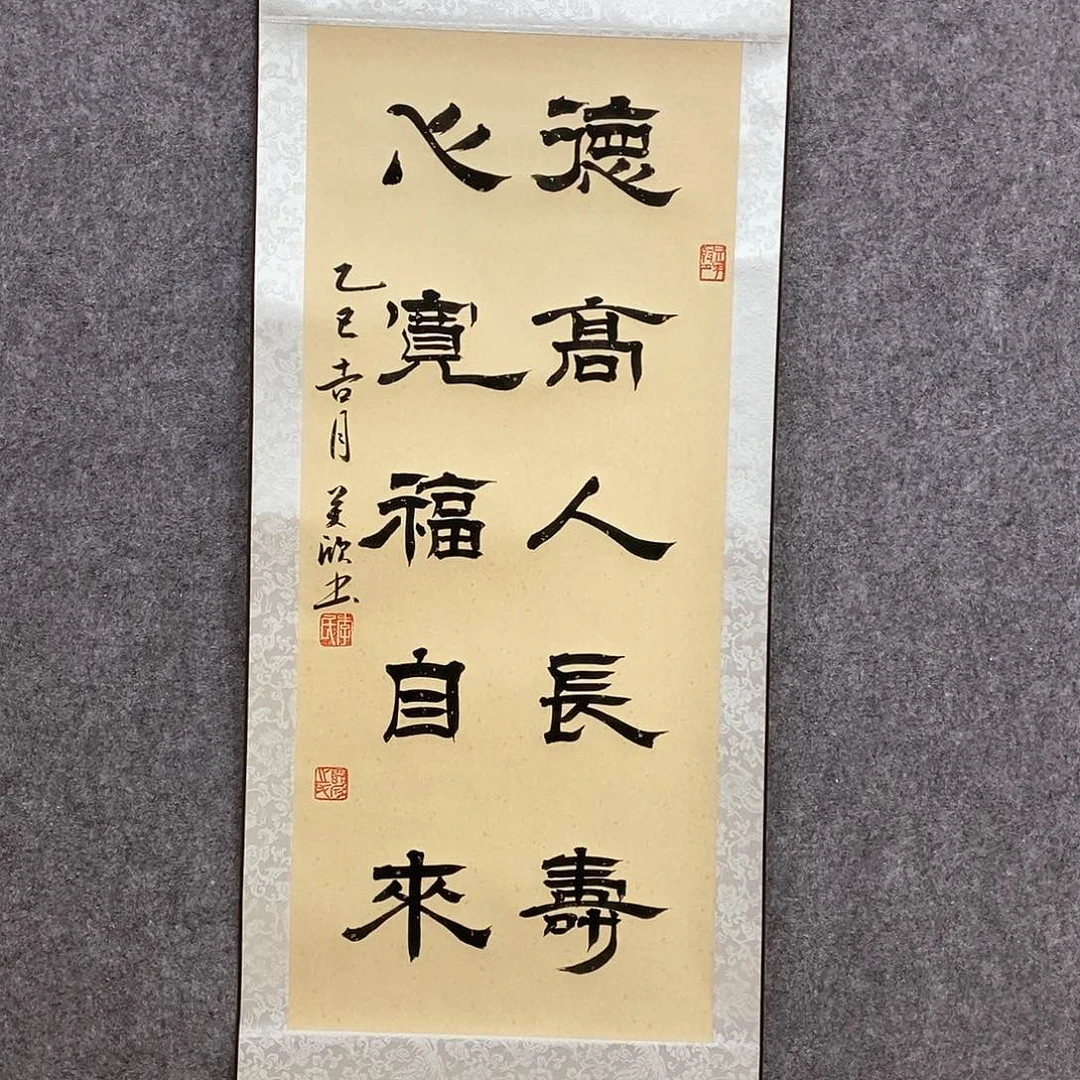 德高人長壽
心寬福自來
乙巳吉月 美欣书
李氏